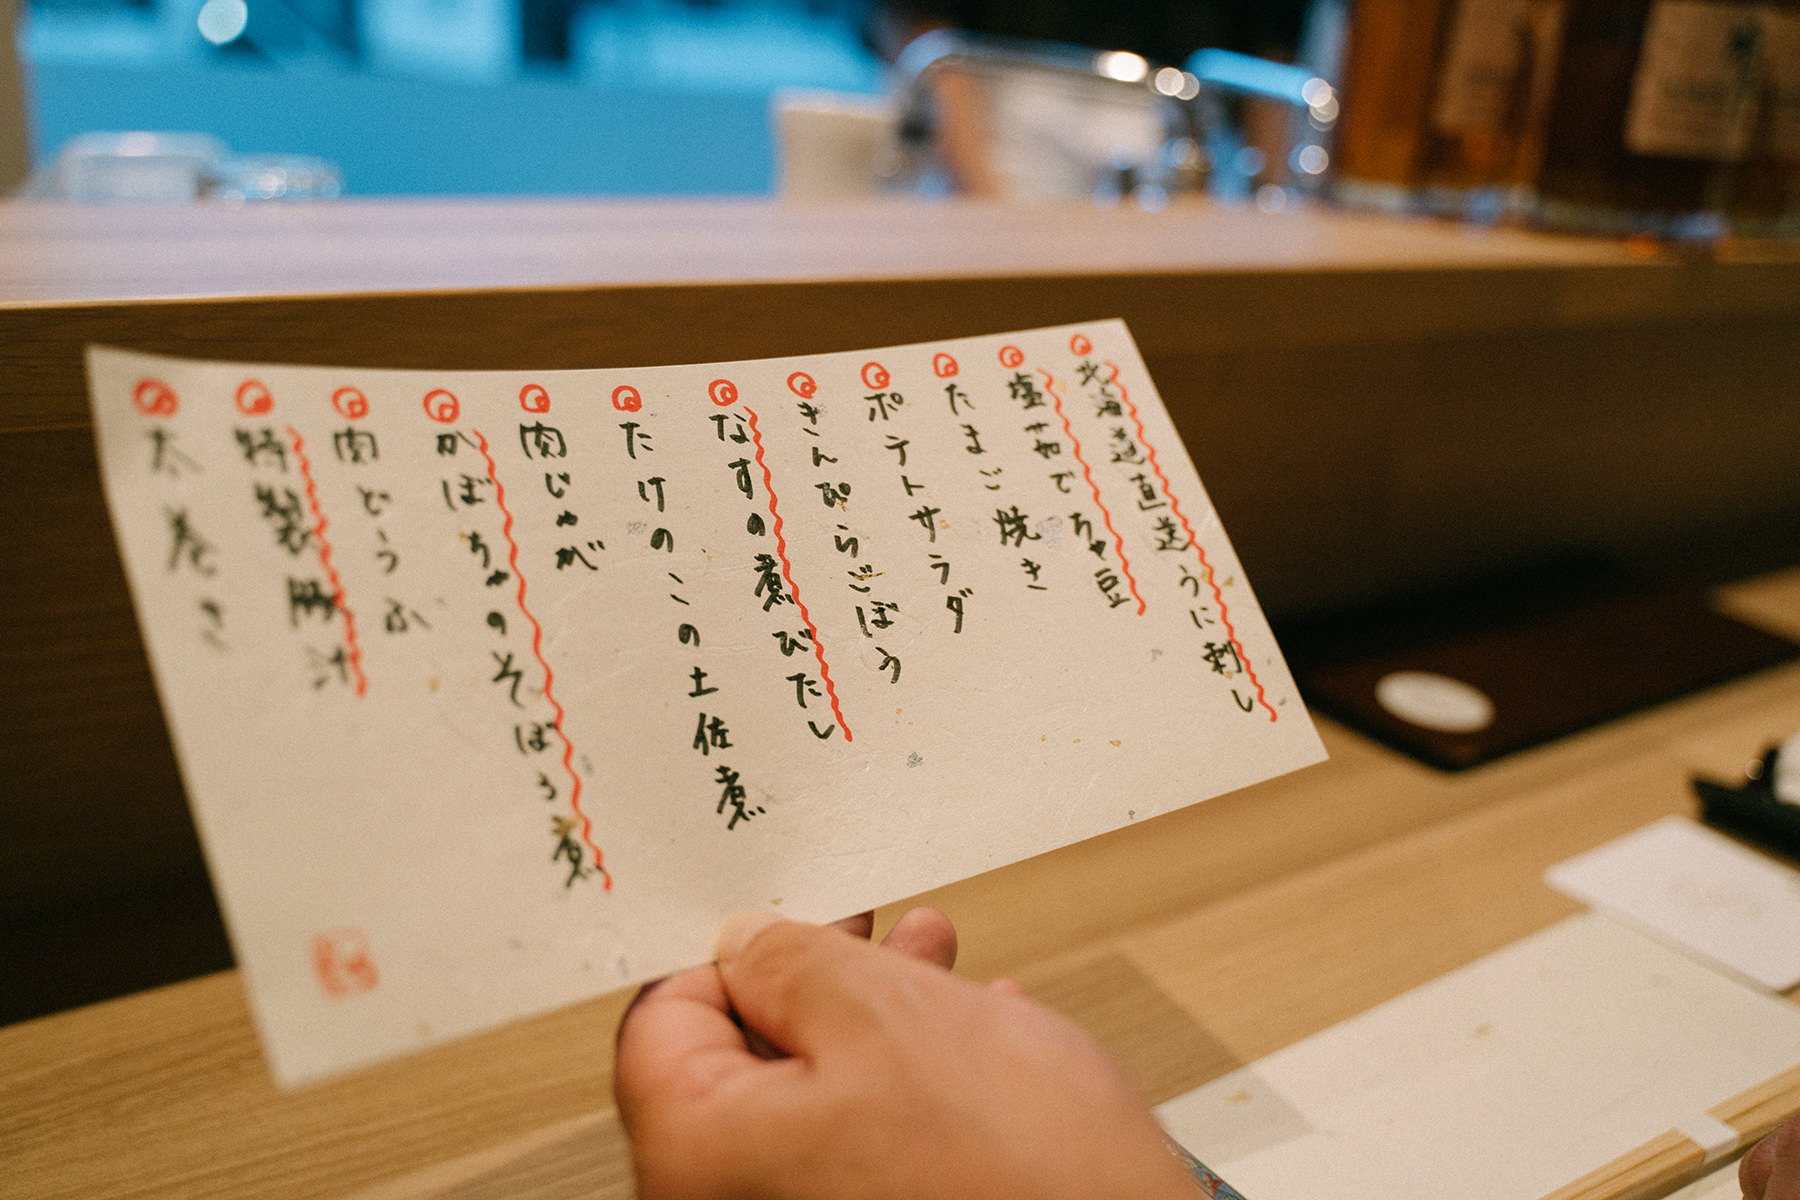 北海道直送うに刺し
塩茹でちゃ豆
たまご焼き
ポテトサラダ
きんぴらごぼう
なすの煮びたし
たけのこの土佐煮
肉じゃが
かぼちゃのそぼろ煮
肉どうふ
特製豚汁
太巻き